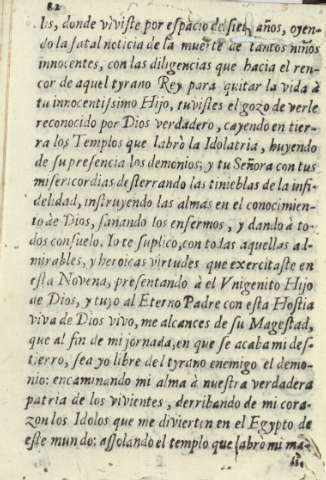 82
lis, donde viviste por espacio de siete años, oyen-
do la fatal noticia de la muerte de tantos niños
innocentes, con las diligencias que hacia el ren-
cor de aquel tyrano Rey para quitar la vida à
tu innocentissimo Hijo, tuvistes el gozo de verle
reconocido por Dios verdadero, cayendo en tier-
ra los Templos que labrò la Idolatria, huyendo
de su presencia los demonios; y tu Señora con tus
misericordias desterrando las tinieblas de la infi-
delidad, instruyendo las almas en el conocimien-
to de Dios, sanando los enfermos, y dando à to-
dos consuelo. Yo te suplico, con todas aquellas ad-
mirables, y heroicas virtudes que exercitaste en
esta Novena, presentando à el Vnigenito Hijo
de Dios, y tuyo al Eterno Padre con esta Hostia
viva de Dios vivo, me alcances de su Magestad,
que al fin de mi jornada, en que se acaba mi des-
tierro, sea yo libre del tyrano enemigo el demo-
nio: encaminando mi alma à nuestra verdadera
patria de los vivientes, derribando de mi cora-
zon los Idolos que me divierten en el Egypto de
este mundo: assolando el templo que labrò mi ma-